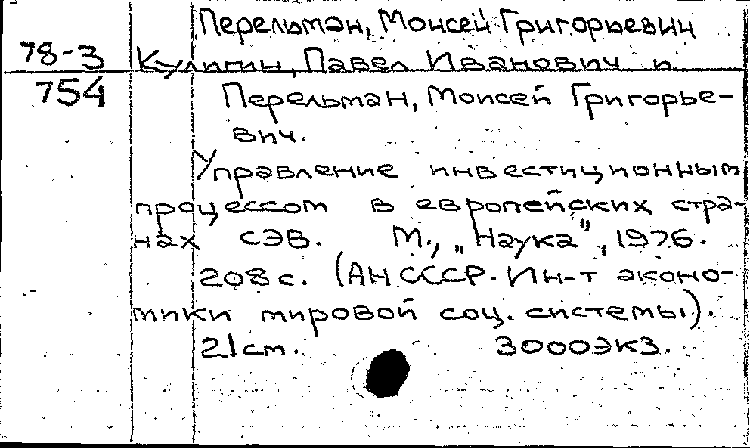 Перельман, Моисей Григорьевич
78-3 Кулигин, Павел Иванович и
754 Перельман, Моисей Григорье-
вич.
Управление инвестиционным
процессом в европейских стра-
нах СЭВ. М., „Наука", 1976.
208 с. (АН СССР. Ин-т эконо-
мики мировой соц. системы).
21 см. 3000 экз.